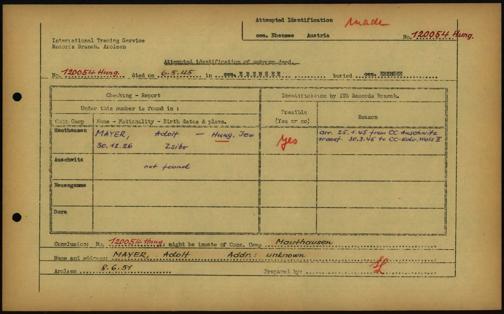 Attempted Identification made
cem. Ebensee Austria No. 120054 Hung.
International Tracing Service
Records Branch, Arolsen
Attempted identification of unknown dead.
No. 120054 Hung. died on 6.5.45 in cem. EBENSEE buried cem. EBENSEE
Checking - Report Identification by ITS Records Branch.
Under this number is found in : Possible Reason
Conc Camp Name - Nationality - Birth dates & place. (Yes or no)
Mauthausen MAYER, Adolf - Hung. Jew Yes arr. 25.1.45 from CC Auschwitz
30.12.26 transf. 30.3.45 to CC
Auschwitz not found
Neuengamme
Dora
Conclusion: No. 120054 Hung. might be inmate of Conc. Camp Mauthausen
Name and address: MAYER, Adolf Addr.: unknown
Arolsen 8.6.51 Prepared by: